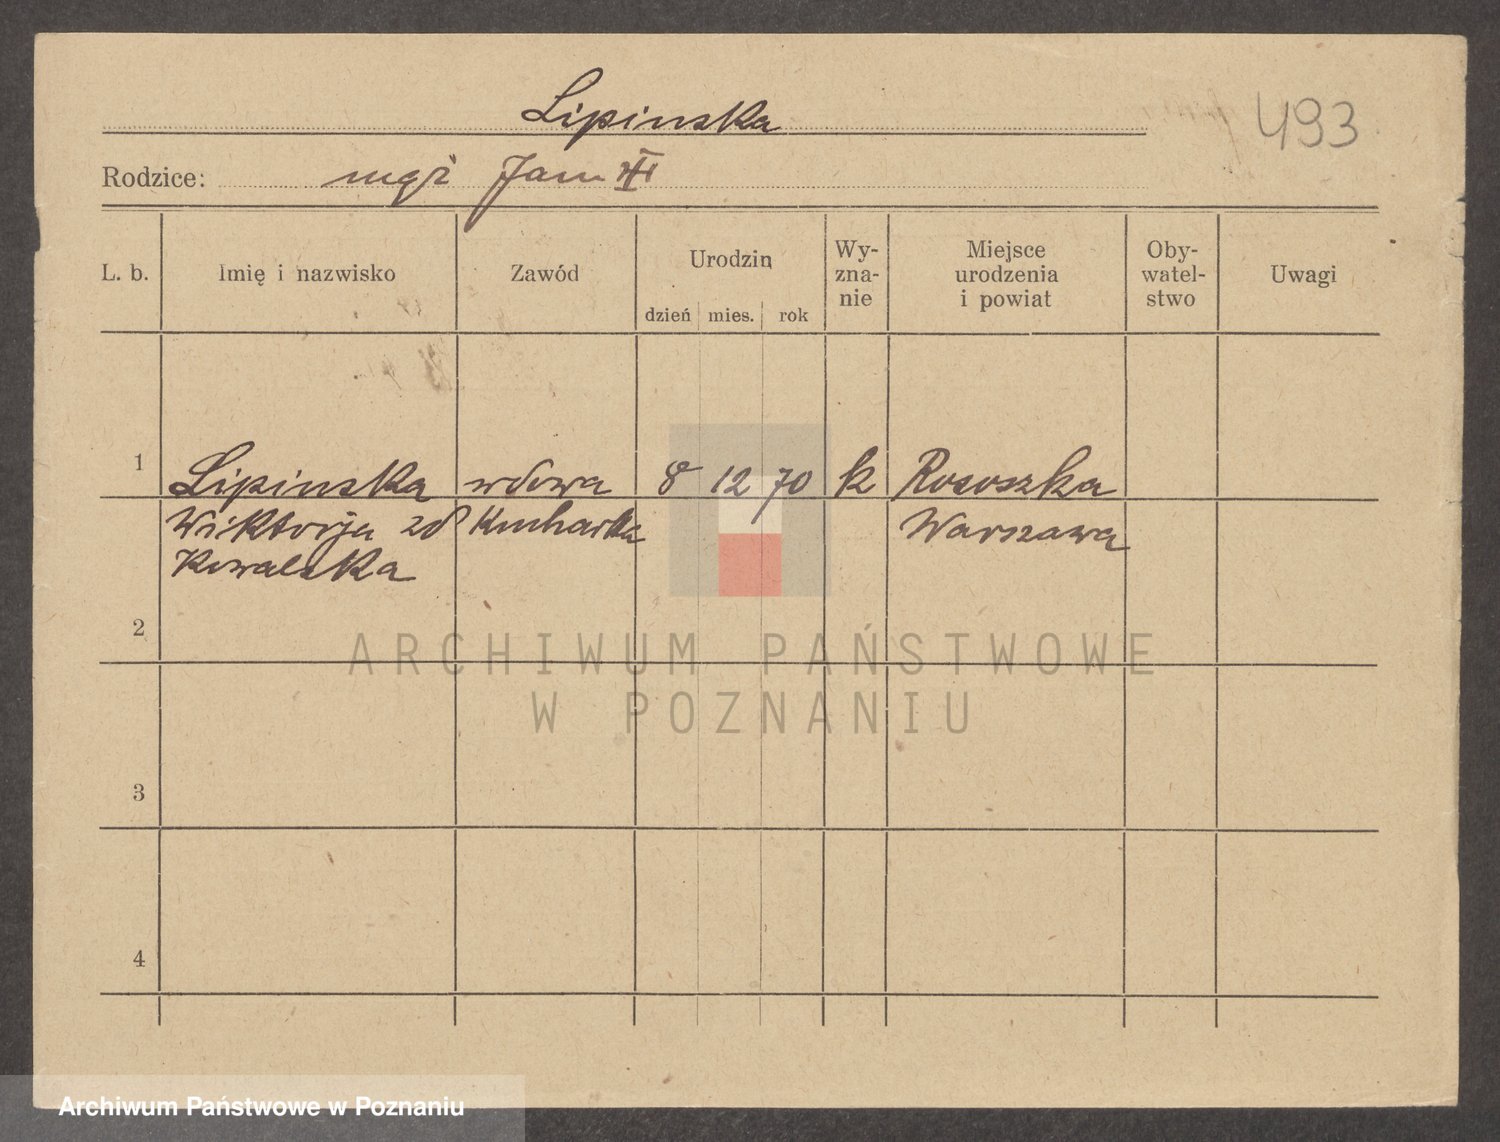 Lipinska
493
Rodzice: mąż Jan III
L. b. Imię i nazwisko Zawód Urodzin dzień mies. rok Wy-zna-nie Miejsce urodzenia i powiat Oby-watel-stwo Uwagi
1 Lipinska wdowa 8 12 70 k Rososzka
Wiktorja zd Kucharka Warszawa
Kowalska
2
ARCHIWUM PAŃSTWOWE
W POZNANIU
3
4
Archiwum Państwowe w Poznaniu